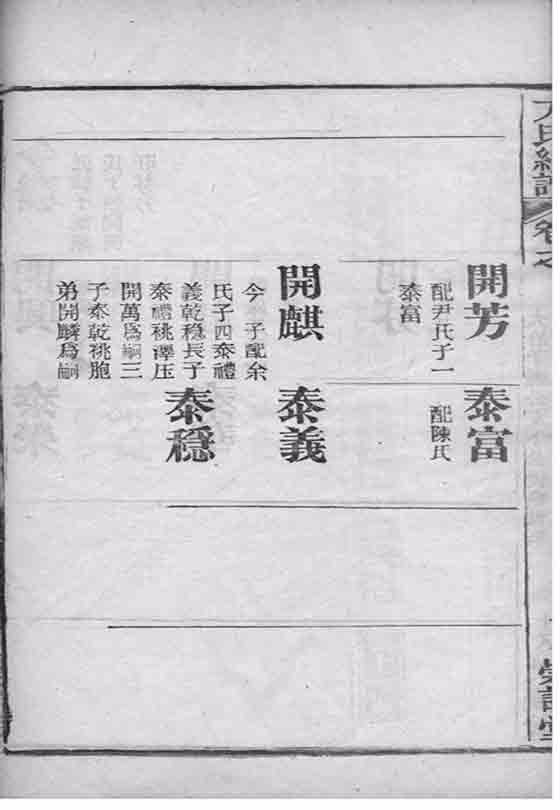 卷之
開芳
配尹氏子一
泰富
泰富
配陳氏
開麒
今 子配余
氏子四泰禮
義乾穩長子
泰禮祧澤压
開萬爲嗣三
子泰乾祧胞
弟開麟爲嗣
泰義
泰穩